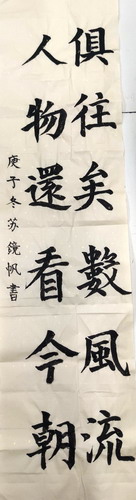 俱往矣數風流
人物還看今朝
庚子冬苏鏡帆書